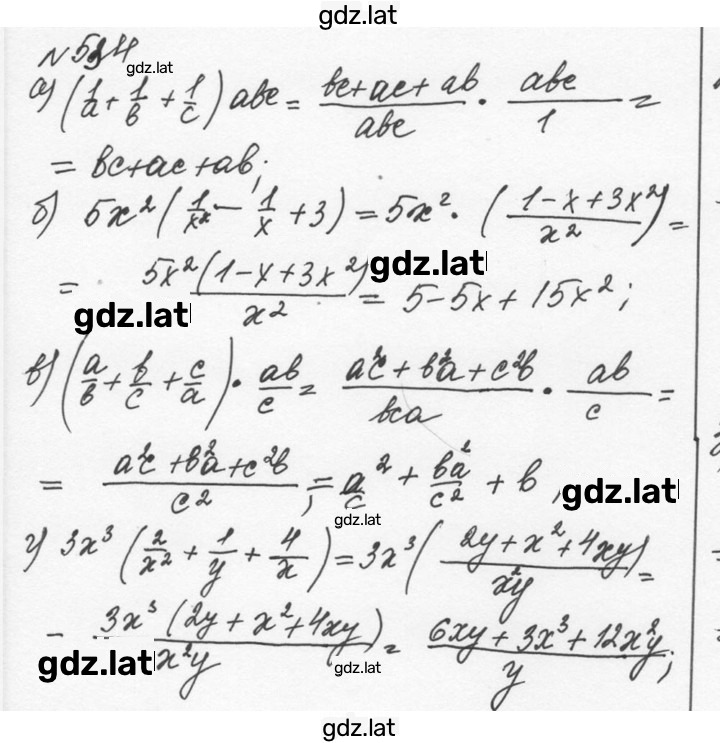 gdz.lat
gdz.lat
а) (1/a + 1/b + 1/c) abc = (bc+ac+ab)/abc · abc/1 =
= bc+ac+ab;
б) 5x²(1/x² − 1/x + 3) = 5x² · ((1−x+3x²)/x²) =
= 5x²(1−x+3x²)/x² = 5−5x+15x²;
gdz.lat
gdz.lat
в) (a/b + b/c + c/a) · ab/c = (a²c+b²a+c²b)/bca · ab/c =
= (a²c+b²a+c²b)/c²; = a²/c + b²a/c² + b,
gdz.lat
gdz.lat
г) 3x³(2/x² + 1/y + 4/x) = 3x³((2y+x²+4xy)/x²y) =
− 3x³(2y+x²+4xy)/x²y = (6xy+3x³+12x²y)/y;
gdz.lat
gdz.lat
gdz.lat